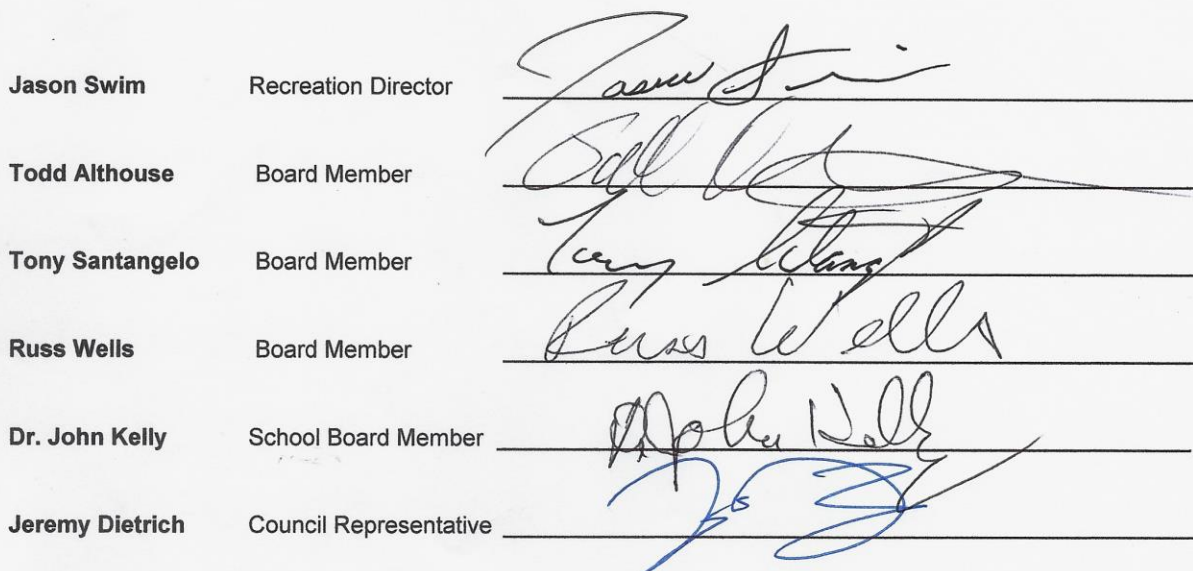 Jason Swim Recreation Director Jason Swim
Todd Althouse Board Member
Tony Santangelo Board Member Tony
Russ Wells Board Member Russ Wells
Dr. John Kelly School Board Member Dr John Kelly
Jeremy Dietrich Council Representative